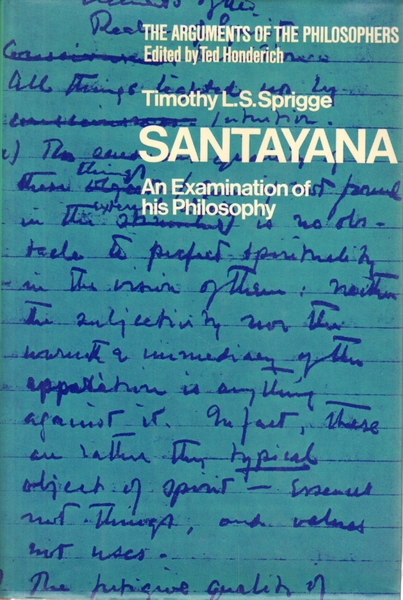 THE ARGUMENTS OF THE PHILOSOPHERS
Edited by Ted Honderich
Timothy L.S. Sprigge
SANTAYANA
An Examination of
his Philosophy
All things by
intuition.
things
in the is no obs-
tacle to perfect spirituality
in the vision of them: neither
the subjectivity nor the
warmth & immediacy of the
apparition is anything
against it. In fact, these
are rather the typical
object of spirit — essences
not things, and values
not uses.
The quality of